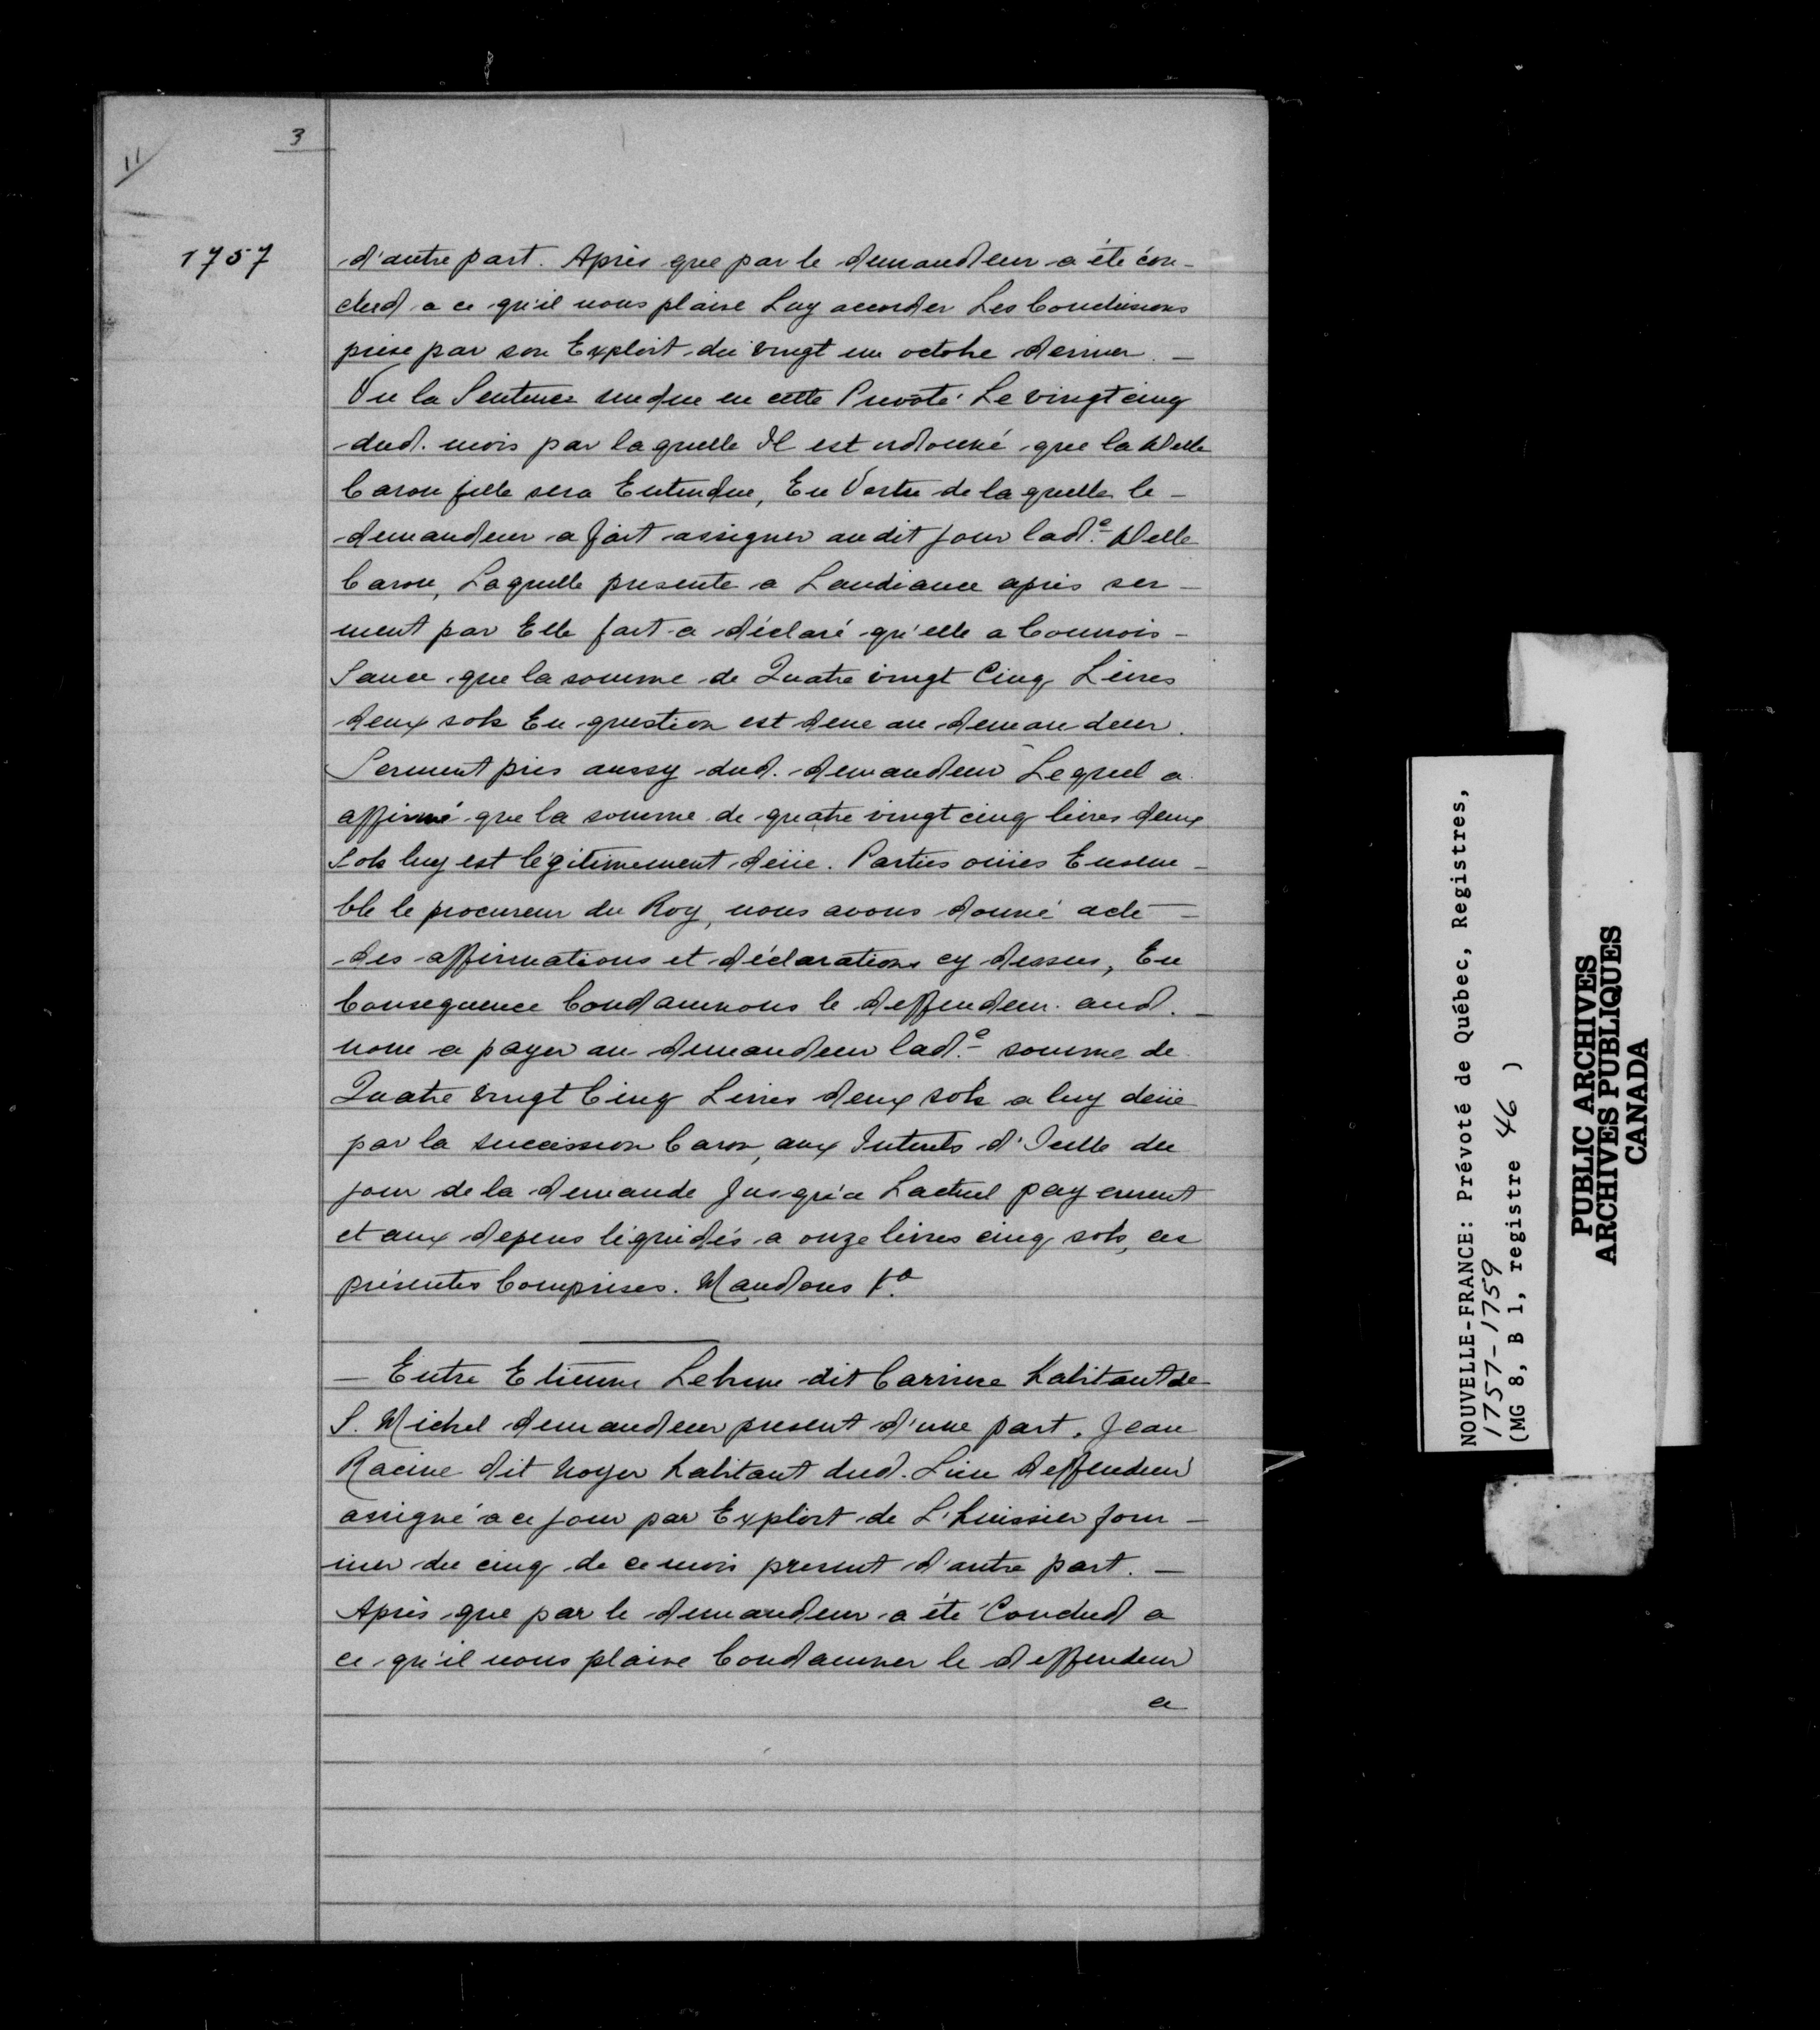 3
11
1757
d'autre part. Après que par le demandeur a été con-
clud a ce qu'il nous plaise Luy accorder Les Conclusions
prise par son Exploit du vingt un octobre dernier. —
Vu la Sentence rendue en cette Prevoté Le vingt cinq
dud. mois par laquelle Il est ordonné que la Delle
Caron fille sera Entendue, En Vertu de laquelle le —
demandeur a fait assigner audit jour lad.e Delle
Caron, Laquelle presente a Laudiance après ser —
ment par Elle fait a déclaré qu'elle a Connois —
Sance que la somme de Quatre vingt Cinq Livres
deux sols En question est deue au demandeur.
Serment pris aussy dud. demandeur Lequel a
affirmé que la somme de quatre vingt cinq livres deux
Sols luy est légitimement deüe. Parties ouïes Ensem —
ble le procureur du Roy, nous avons donné acte —
des affirmations et déclarations cy dessus, En
Consequence Condamnons le deffendeur aud. —
nom a payer au demandeur lad.e somme de
Quatre vingt Cinq Livres deux sols a luy deüe
par la succession Caron, aux Interets d'Icelle du
jour de la demande Jusqu'a Lactuel payement
et aux depens liquidés a onze livres cinq sols, ces
présentes Comprises. Mandons
— Entre Etienne Lebrun dit Carriere habitant de
S. Michel demandeur present d'une part. Jean
Racine dit Noyer habitant dud. Lieu deffendeur
assigné a ce jour par Exploit de L'huissier four —
nier du cinq de ce mois present d'autre part. —
Après que par le demandeur a été Conclud a
ce qu'il nous plaise Condamner le deffendeur
a
NOUVELLE-FRANCE: Prévoté de Québec, Registres,
1757-1759
(MG 8, B 1, registre 46 )
PUBLIC ARCHIVES
ARCHIVES PUBLIQUES
CANADA